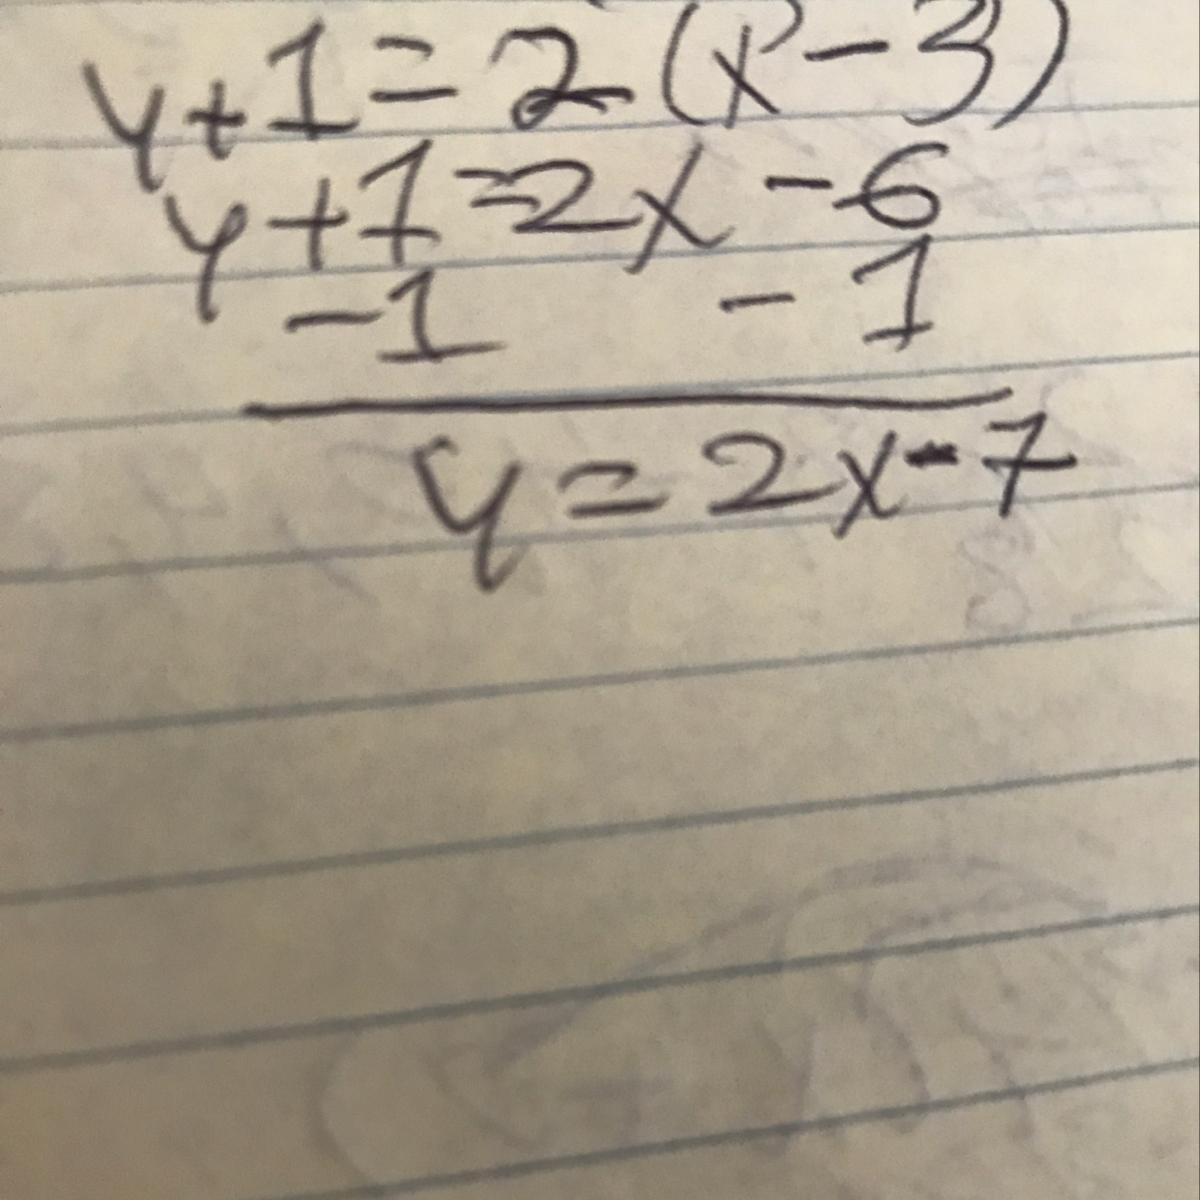 y+1=2(x-3)
y+1=2x-6
-1 -1
y=2x-7